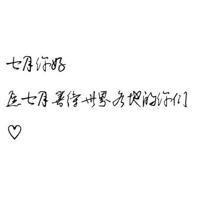 七月你好
在七月等待世界各地的你们
♡